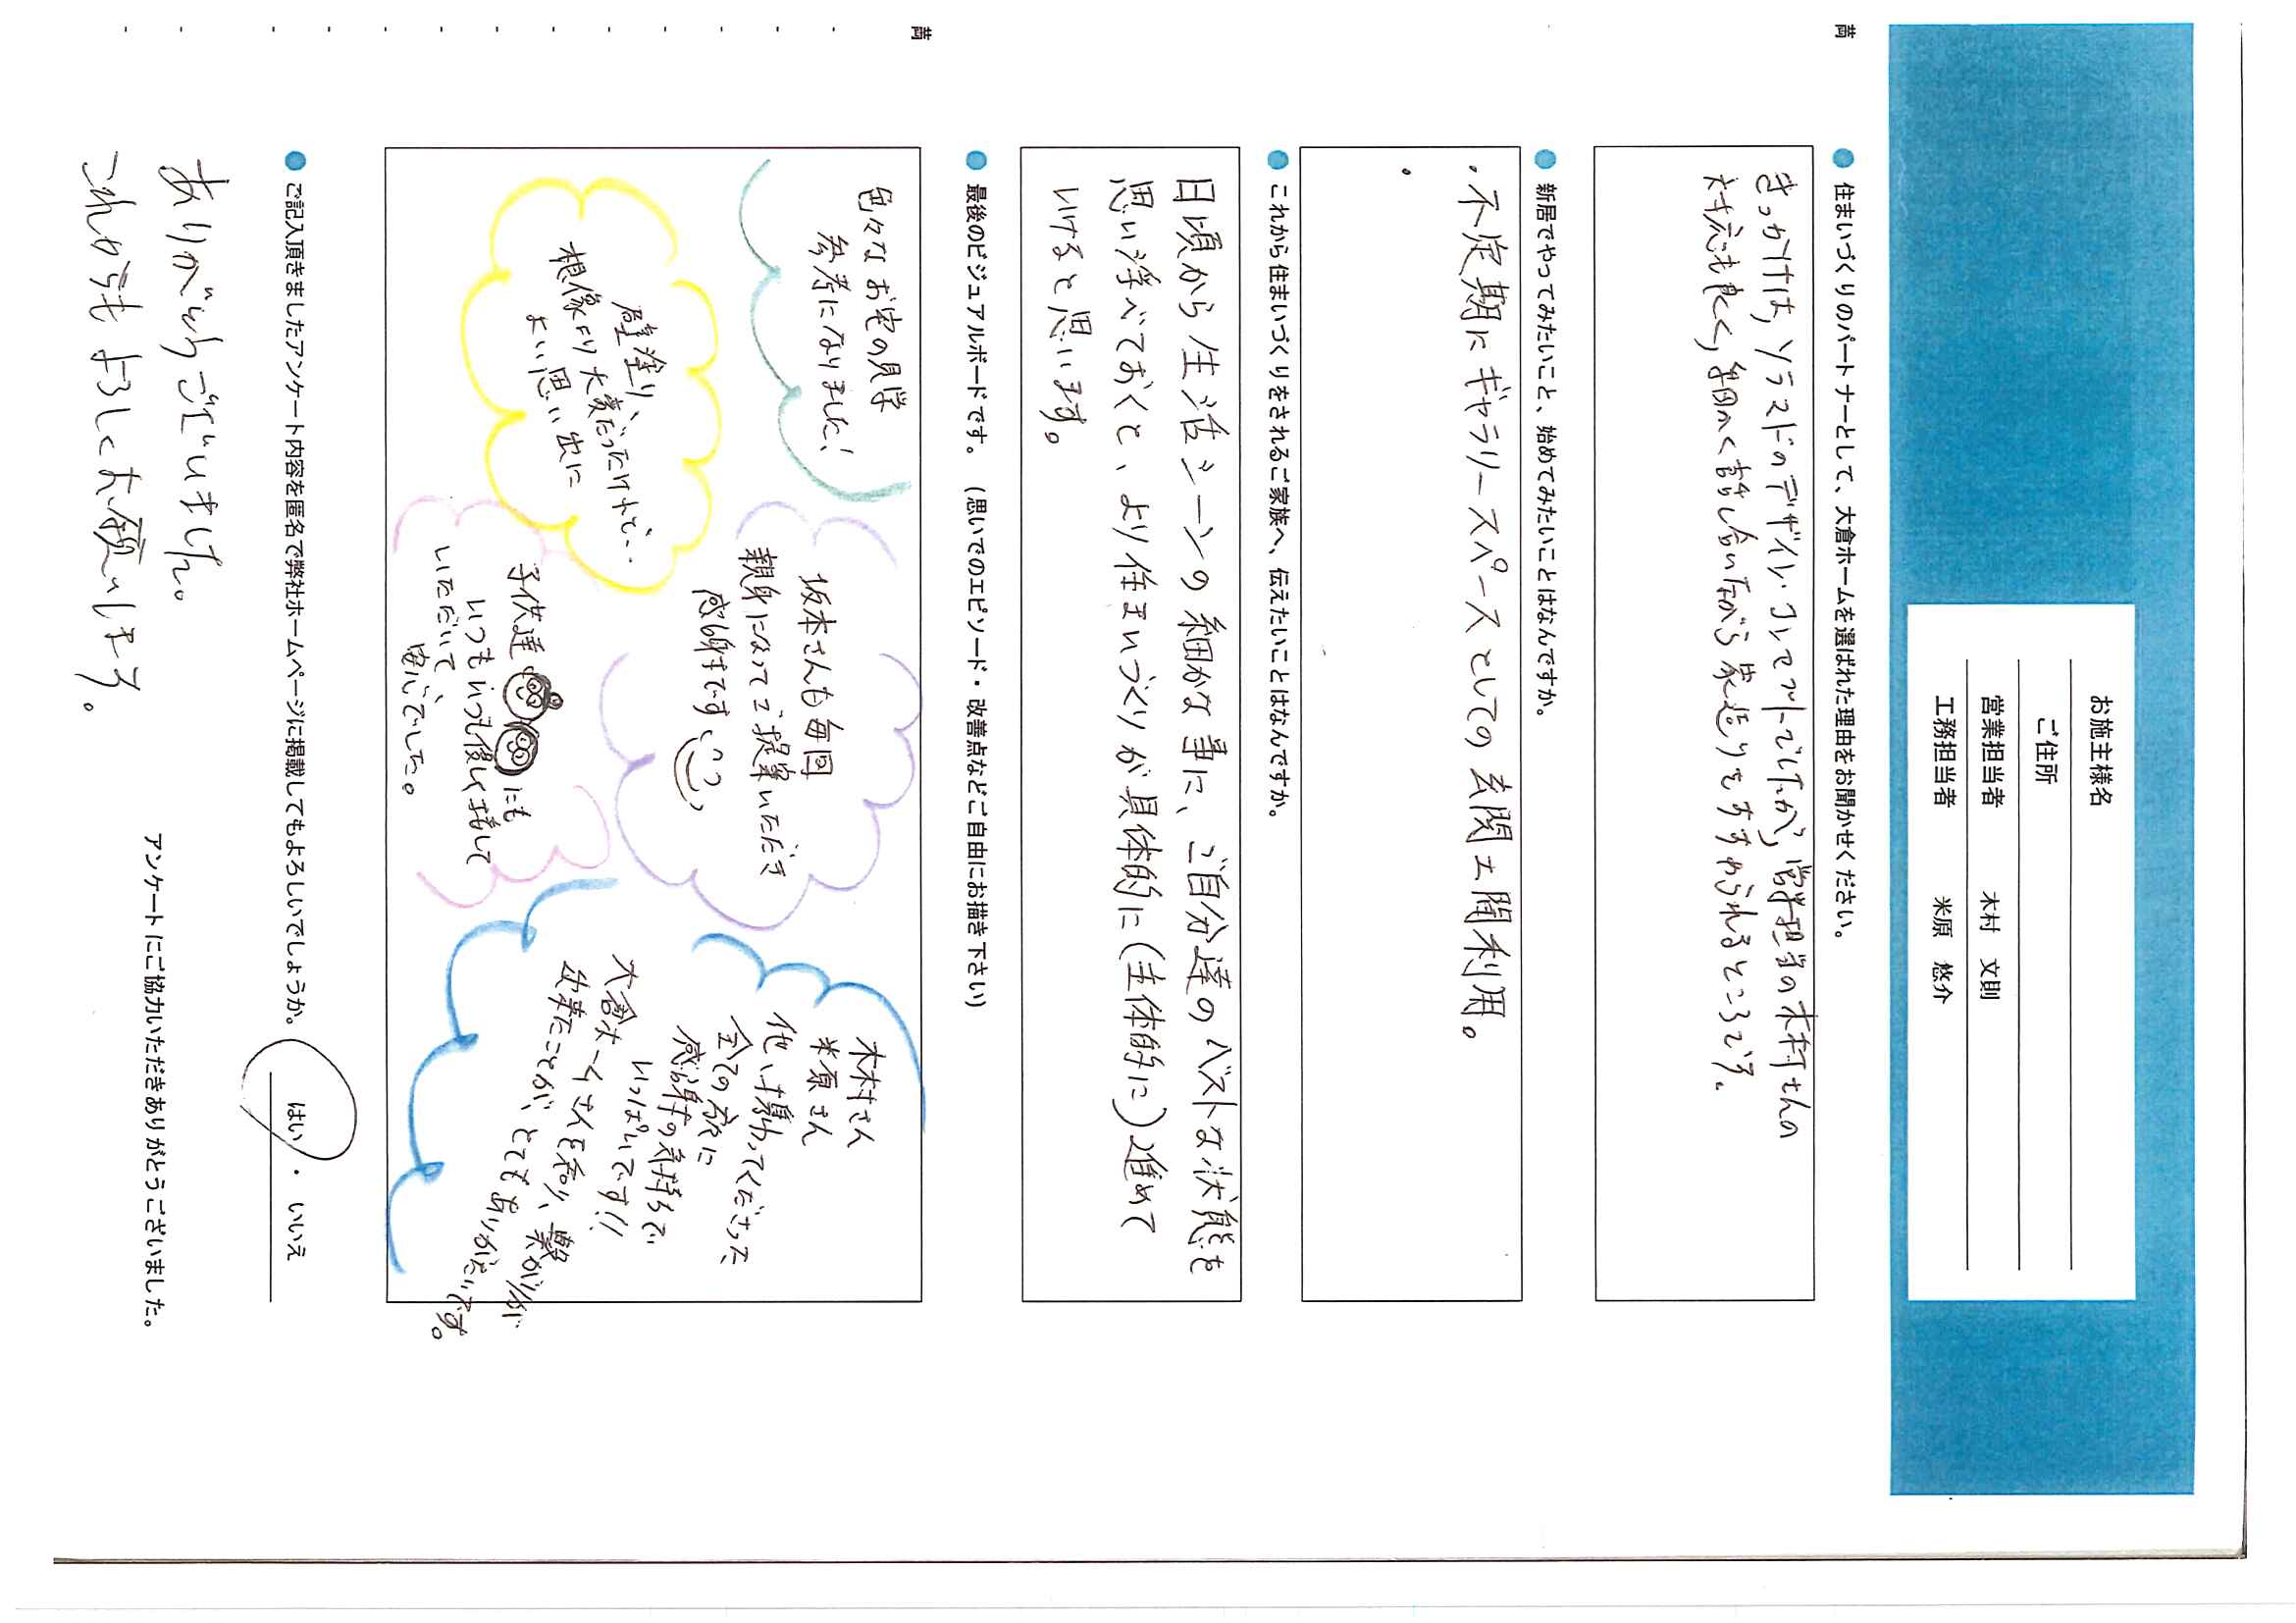 お施主様名
ご住所
営業担当者 木村 文則
工務担当者 米原 悠介
● 住まいづくりのパートナーとして、大倉ホームを選ばれた理由をお聞かせください。
きっかけは、ソラマドのデザイン・コンセプトでしたが、営業担当の木村さんの
対応も良く、細かく話し合いながら家造りをすすめられるところです。
● 新居でやってみたいこと、始めてみたいことはなんですか。
・不定期にギャラリースペースとしての玄関土間利用。
・
● これから住まいづくりをされるご家族へ、伝えたいことはなんですか。
日頃から生活シーンの細かな事に、ご自分達のベストな状態を
思い浮べておくと、より住まいづくりが具体的に(主体的に)進めて
いけると思います。
● 最後のビジュアルボードです。 (思いでのエピソード・改善点などご自由にお描き下さい)
色々なお宅の見学
参考になりました!
壁塗り、
想像より大変だったけれど、..
よい思い出に
坂本さんも毎回
親身になってご提案いただき
感謝です
子供達にも
いつもいつも優しく接して
いただいて、
安心でした。
木村さん
米原さん
他、携わってくださった
全ての方々に
感謝の気持ちで
いっぱいです!!
大倉ホームさんを知り、繋がりが
出来たことが、とてもありがたいです。
● ご記入頂きましたアンケート内容を匿名で弊社ホームページに掲載してもよろしいでしょうか。 はい ・ いいえ
アンケートにご協力いただきありがとうございました。
ありがとうございました。
これからもよろしくお願いします。